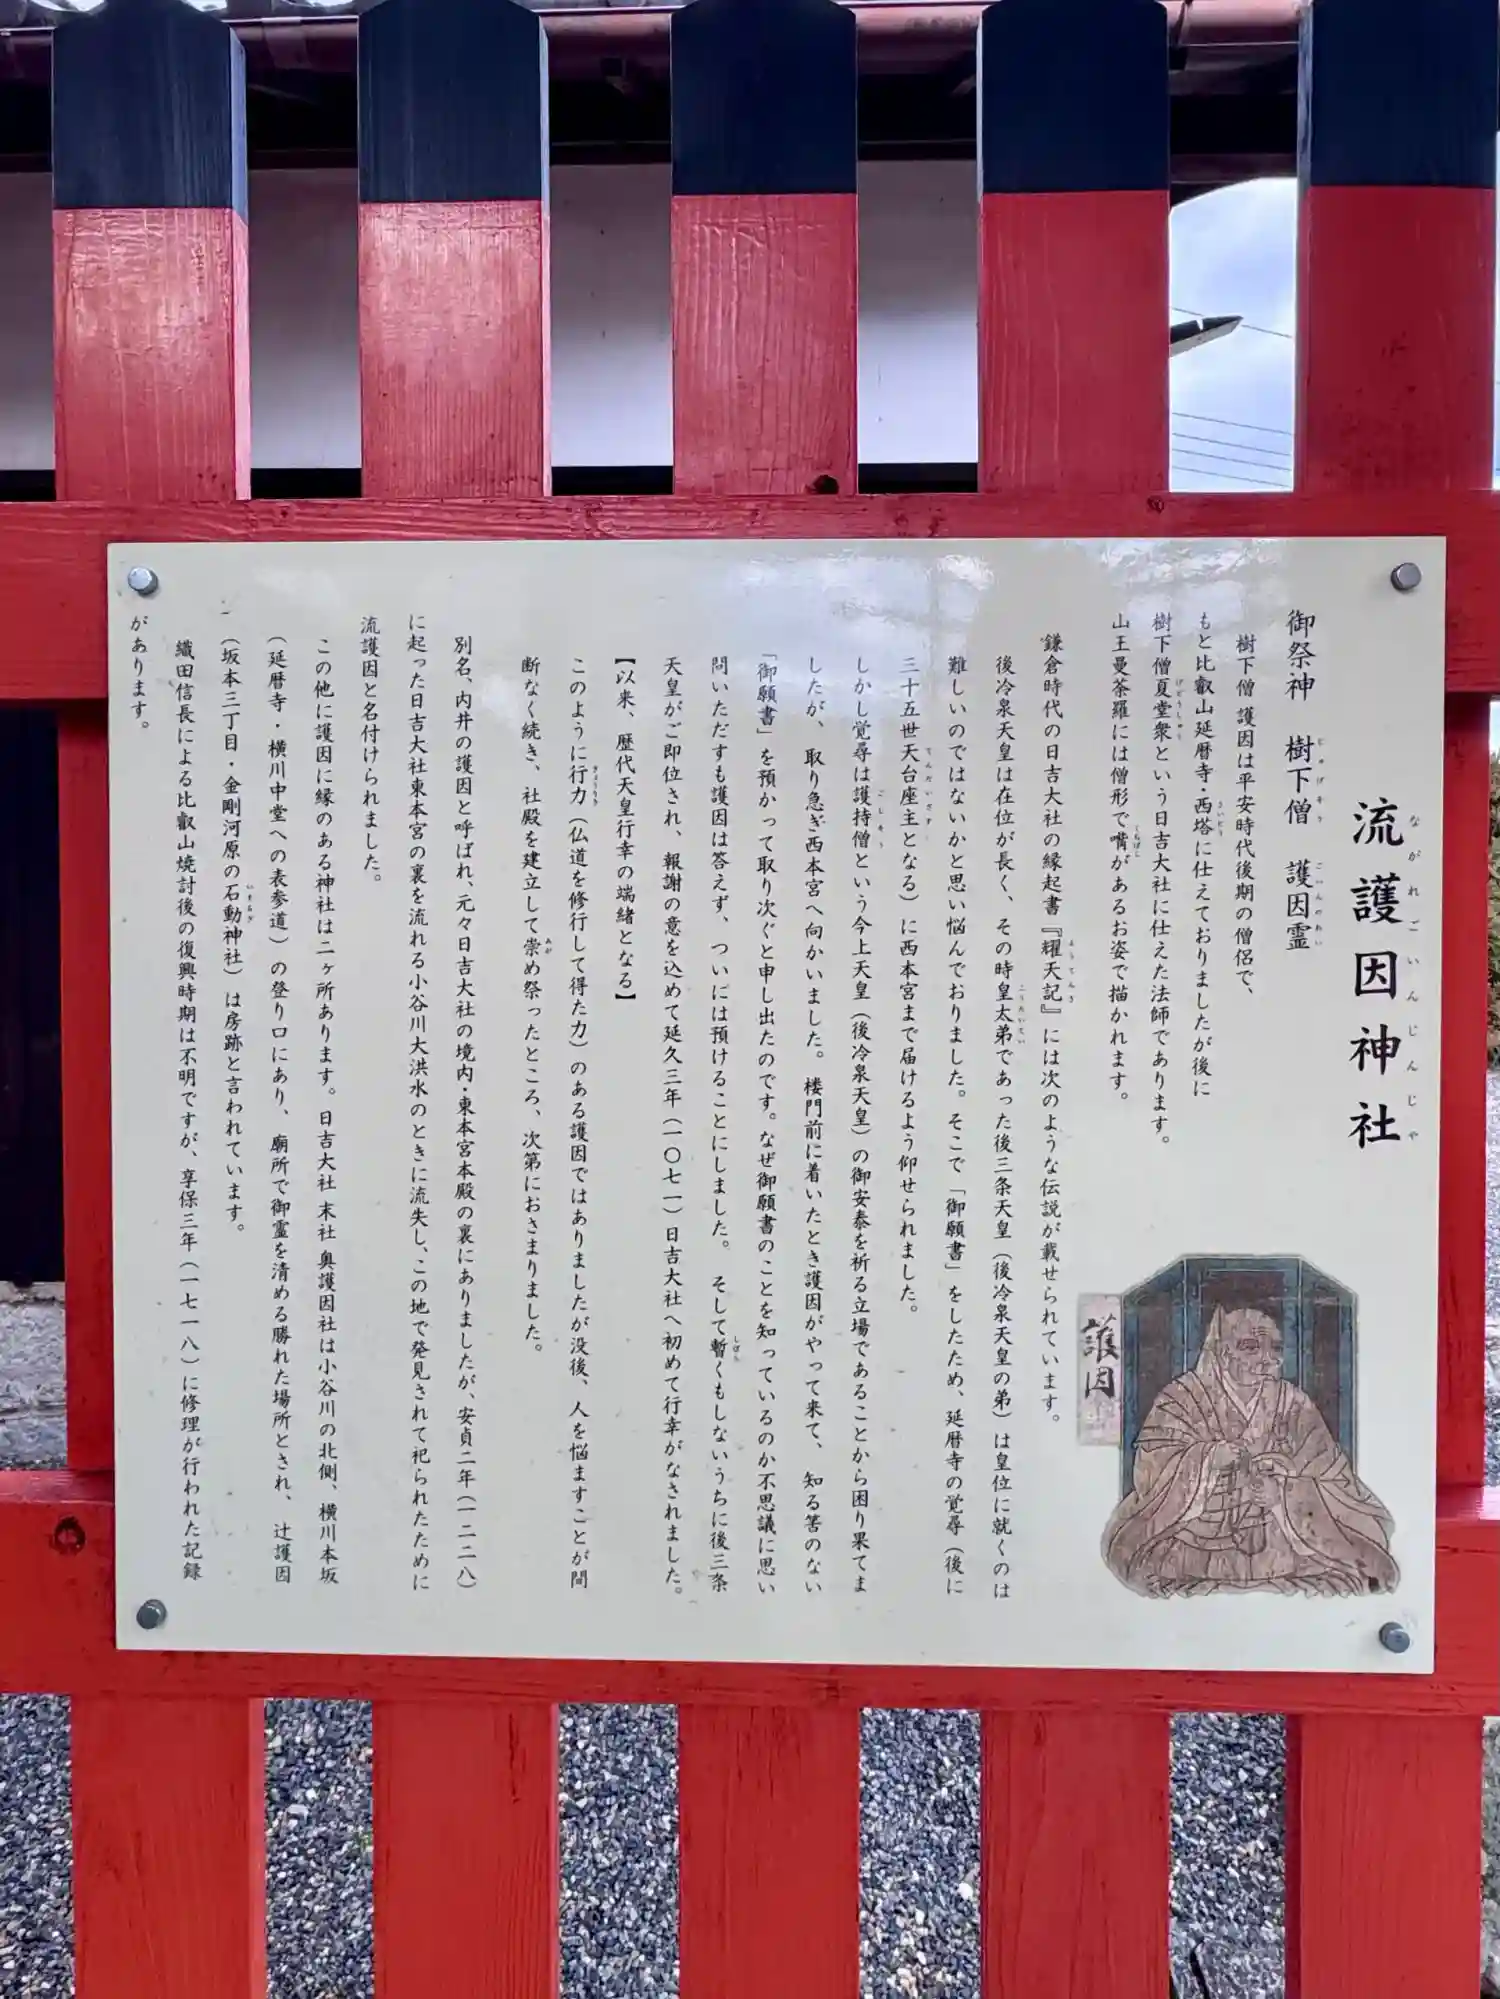 流護因神社
ながれごいんじんじゃ
御祭神　樹下僧　護因霊
じゅげそう　ごいんのれい
樹下僧 護因は平安時代後期の僧侶で、
もと比叡山延暦寺・西塔に仕えておりましたが後に
さいとう
樹下僧夏堂衆という日吉大社に仕えた法師であります。
げどうしゅう
山王曼荼羅には僧形で嘴があるお姿で描かれます。
くちばし
鎌倉時代の日吉大社の縁起書『耀天記』には次のような伝説が載せられています。
ようてんき
後冷泉天皇は在位が長く、その時皇太弟であった後三条天皇（後冷泉天皇の弟）は皇位に就くのは
こうたいてい
難しいのではないかと思い悩んでおりました。そこで「御願書」をしたため、延暦寺の覚尋（後に
三十五世天台座主となる）に西本宮まで届けるよう仰せられました。
てんだいざす
しかし覚尋は護持僧という今上天皇（後冷泉天皇）の御安泰を祈る立場であることから困り果てま
ごじそう
したが、取り急ぎ西本宮へ向かいました。楼門前に着いたとき護因がやって来て、知る筈のない
「御願書」を預かって取り次ぐと申し出たのです。なぜ御願書のことを知っているのか不思議に思い
問いただすも護因は答えず、ついには預けることにしました。そして暫くもしないうちに後三条
しばら
天皇がご即位され、報謝の意を込めて延久三年（一〇七一）日吉大社へ初めて行幸がなされました。
【以来、歴代天皇行幸の端緒となる】
このように行力（仏道を修行して得た力）のある護因ではありましたが没後、人を悩ますことが間
ぎょうりき
断なく続き、社殿を建立して崇め祭ったところ、次第におさまりました。
あが
別名、内井の護因と呼ばれ、元々日吉大社の境内・東本宮本殿の裏にありましたが、安貞二年（一二二八）
に起った日吉大社東本宮の裏を流れる小谷川大洪水のときに流失し、この地で発見されて祀られたために
流護因と名付けられました。
この他に護因に縁のある神社は二ヶ所あります。日吉大社 末社 奥護因社は小谷川の北側、横川本坂
（延暦寺・横川中堂への表参道）の登り口にあり、廟所で御霊を清める勝れた場所とされ、辻護因
（坂本三丁目・金剛河原の石動神社）は房跡と言われています。
いするぎ
織田信長による比叡山焼討後の復興時期は不明ですが、享保三年（一七一八）に修理が行われた記録
があります。
護因